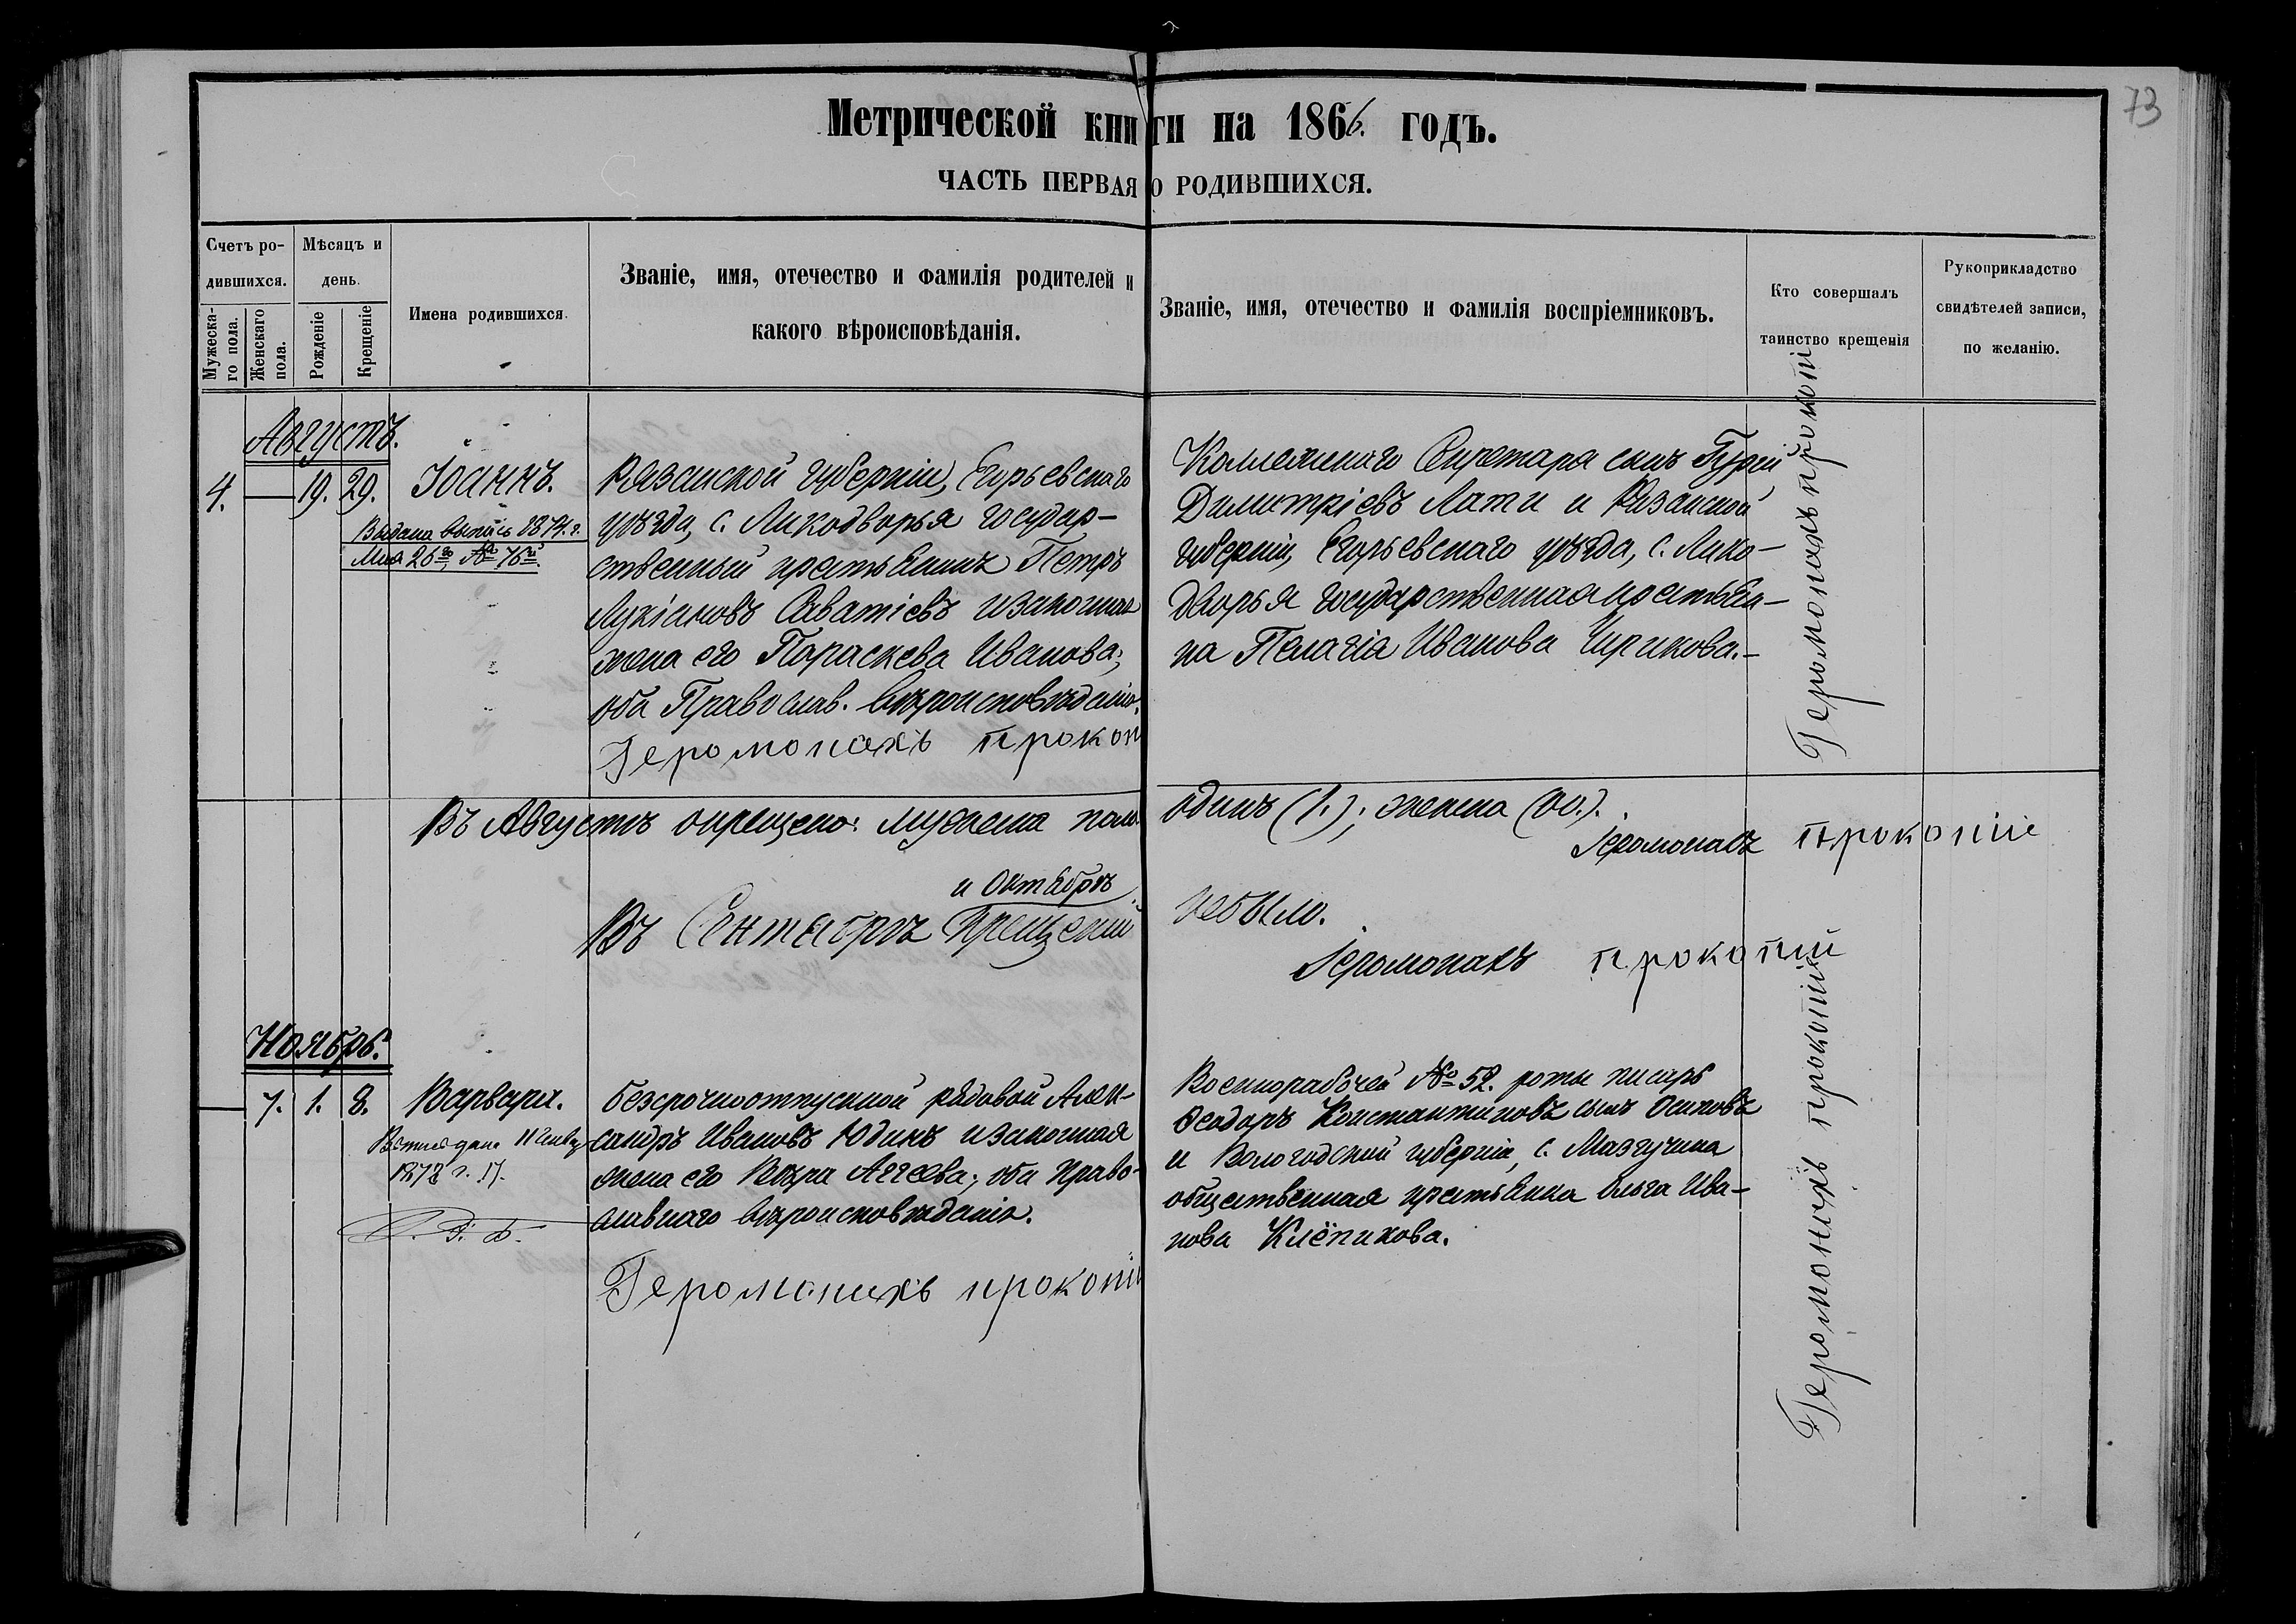 73
Метрической книги на 1866. годъ.
ЧАСТЬ ПЕРВАЯ О РОДИВШИХСЯ.
Счетъ ро-
дившихся.
Мужеска-
го пола.
Женскаго
пола.
Мѣсяцъ и
день.
Рожденіе
Крещеніе
Имена родившихся.
Званіе, имя, отечество и фамилія родителей и
какого вѣроисповѣданія.
Званіе, имя, отечество и фамилія воспріемниковъ.
Кто совершалъ
таинство крещенія
Рукоприкладство
свидѣтелей записи,
по желанію.
Августъ.
4. — 19. 29. Іоаннъ.
Выдана выпись 1874. г.
Мая 26го, №
Рязанской губерніи, Егорьевскаго
уѣзда, с. Ликодворья государ-
ственный крестьянинъ Петръ
Лукіановъ Саватіевъ и законная
жена его Параскева Иванова;
оба Православ. вѣроисповѣданія.
Іеромонахъ прокопі
Коллежскаго Секретаря сынъ Гурій
Димитріевъ Лати и Рязанской
губерніи, Егорьевскаго уѣзда, с. Лико-
дворья государственная крестьян-
ка Пелагія Иванова Чирикова.—
Іеромонахъ прокопій
Въ Августѣ окрещено: мужеска пола одинъ (1.); женска (00.).
Іеромонахъ прокопіи
и Октябрѣ
Въ Сентябрѣ крещеній небыло.
Іеромонахъ прокопій
Ноябрь.
— 7. 1. 8. Варвара.
1872 г. 17.
безсрочноотпускной рядовой Алек-
сандръ Ивановъ Юдинъ и законная
жена его Вѣра Аггеева; оба Право-
славнаго вѣроисповѣданія.
Іеромонахъ прокопі
Военнорабочей № 52. роты писарь
Ѳеодоръ Константиновъ сынъ Осиповъ
и Вологодской губерніи, с. Мазгучина
общественная крестьянка Ольга Ива-
нова Клёпикова.
Іеромонахъ прокопій